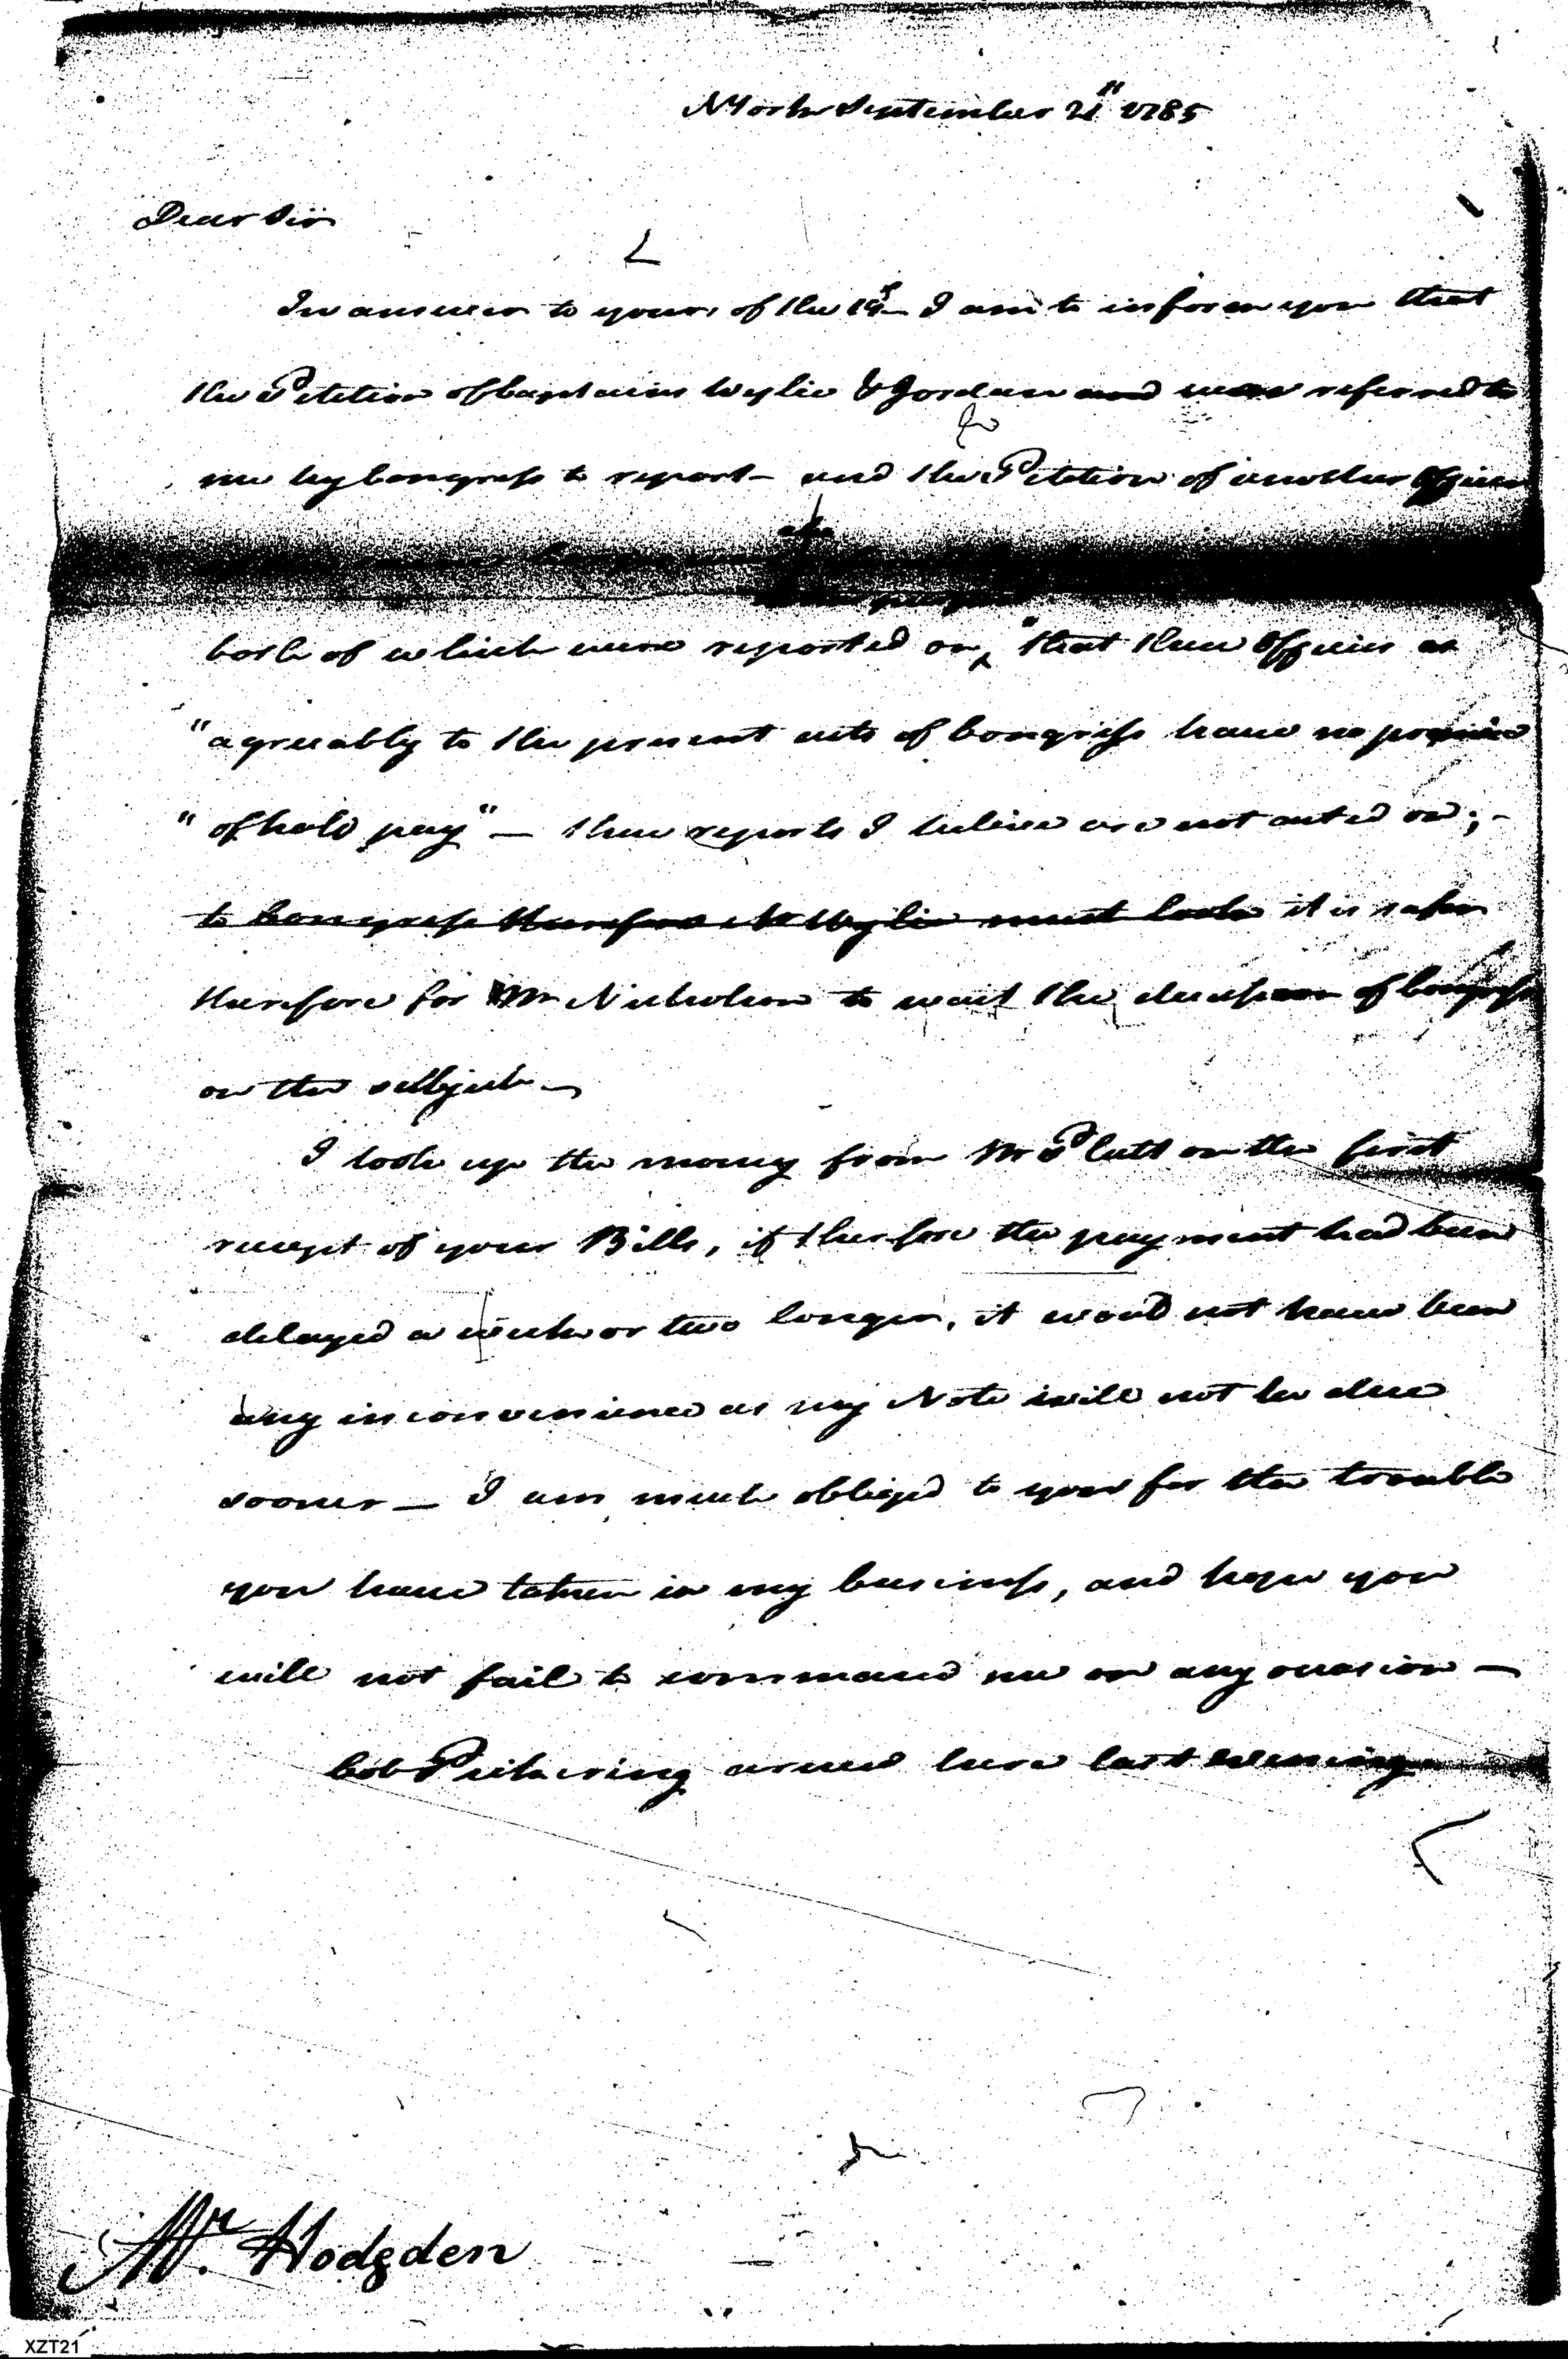 NYork September 21st 1785
Dear Sir
In answer to yours of the 19th I am to inform you that
the Petition of Captains Wylie & Jordan and were referred to
me by Congress to report - and the Petition of another Officer
also
both of which were reported on, "that these Officers as
"agreeably to the present acts of Congress have no promise
"of half pay" — these reports I believe are not acted on; -
to Congress therefore Mr Wylie must look it is safer
therefore for Mr Nicholson to wait the decision of Congress
on the subject —
I took up the money from Mr Platt on the first
receipt of your Bills, if therefore the payment had been
delayed a week or two longer, it would not have been
any inconvenience as my Note will not be due
sooner — I am much obliged to you for the trouble
you have taken in my business, and hope you
will not fail to command me on any occasion —
Col Pickering arrived here last evening
Mr. Hodgden
XZT21